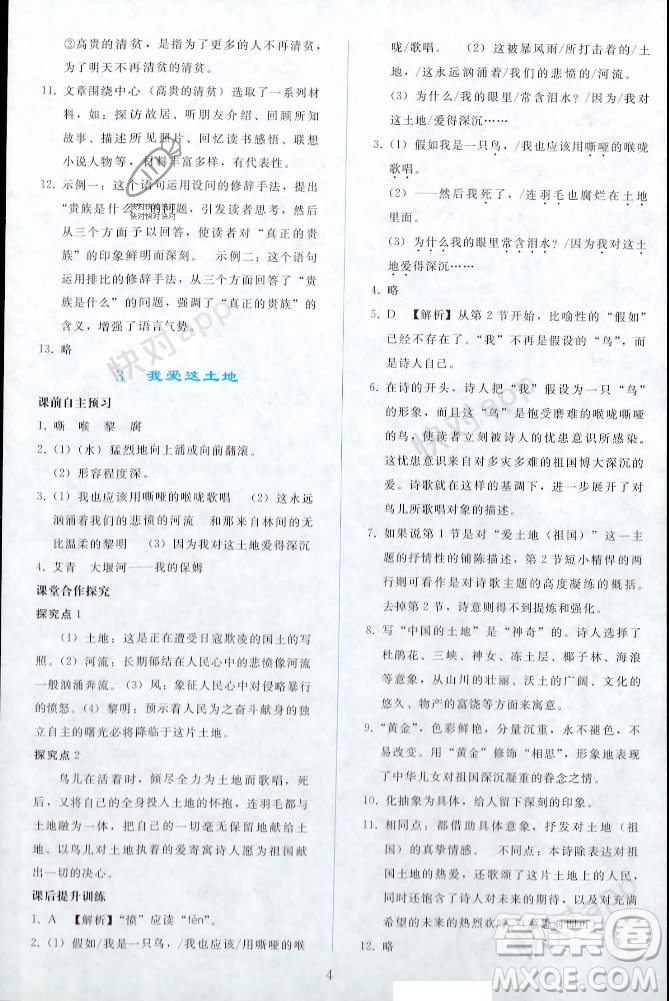 ②高贵的清贫，是指为了更多的人不再清贫、
为了明天不再清贫的清贫。
11. 文章围绕中心（高贵的清贫）选取了一系列材
料，如：探访故居、听朋友介绍、回忆所知
故事、亲见所见照片、回忆读书感悟、联想
小说人物等，材料丰富多样，有代表性。
12. 示例一：这个语句运用设问的修辞手法，提出
“贵族是什么”的问题，引起读者思考，然后
从三个方面进行回答，使“真正的贵族”
的印象鲜明而深刻。 示例二：这个语句
运用排比的修辞手法，从三个方面回答了“贵
族是什么”的问题，强调了“真正的贵族”的
含义，增强了语言气势。
13. 略
3 我爱这土地
课前自主预习
1. 嘶 喉 黎 腐
2. (1)（水）猛烈地向上涌或向前翻滚。
(2) 形容程度深。
3. (1) 我也应该用嘶哑的喉咙歌唱 (2) 这永远
汹涌着我们的悲愤的河流 和那来自林间的无
比温柔的黎明 (3) 因为我对这土地爱得深沉
4. 艾青 大堰河——我的保姆
课堂合作探究
探究点 1
(1) 土地：这是正在遭受日寇欺凌的国土的写
照。(2) 河流：长期郁结在人民心中的悲愤像河流一
般汹涌奔流。(3) 风：象征人民心中对侵略暴行
的愤怒。(4) 黎明：预示着人民为之奋斗献身的独
立自主的曙光必将降临于这片土地。
探究点 2
鸟儿在活着时，倾尽全力为土地而歌唱，死
后又将自己的全身投入土地的怀抱，连羽毛都与土
地融为一体，把自己的一切毫无保留地献给土
地，以鸟儿对土地的执着挚爱寓诗人愿为祖国献
出一切的决心。
课后提升训练
1. A 【解析】“愤”应读“fèn”。
2. (1) 假如/我是一只鸟，/我也应该/用嘶哑的喉
咙/歌唱。 (2) 被暴风雨/所打击着的/土
地，/永远汹涌着/我们的悲愤的/河流。
(3) 为什么/我的眼里/常含泪水？/因为/我对
这土地/爱得深沉……
3. (1) 假如我是一只鸟，/我也应该用嘶哑的喉咙
歌唱。
(2) ——然后我死了，/连羽毛也腐烂在土地
里面。
(3) 为什么我的眼里常含泪水？/因为我对这土
地爱得深沉……
4. 略
5. D 【解析】从第 2 节开始，比喻性的“假如”
已经不存在了。“我”不再是假设的鸟，而是
诗人自己。
6. 在诗的开头，诗人把“我”假设为一只“鸟”
的形象，而且这“鸟”是饱受磨难的喉咙嘶哑
的鸟，烘托了全诗被诗人的忧患意识所感染。
这忧患意识来自对多灾多难的祖国博大深沉的
爱。诗歌就在这样的基调下，进一步展开了对
鸟儿所歌唱对象的描述。
7. 如果说第 1 节是对“爱土地（祖国）”这一主
题的抒情性的铺陈描述，第 2 节短小精悍的两
行则是对诗歌主题的高度凝练的概括。
去掉第 2 节，诗意则得不到提炼和强化。
8. 写“中国的土地”是“神奇”的。诗人选取了
杜鹃花、三峡、神女、冻土层、椰子林、湖泊
等意象，从山川的壮丽、沃土的广阔、文化的
悠久、物产的富饶等方面来写。
9. “黄金”，色彩鲜艳，分量重，永不褪色，不
易改变。用“黄金”修饰“相思”，形象地表达
了中华儿女对祖国深沉凝重的眷念之情。
10. 化抽象为具体，给人留下深刻的印象。
11. 相同点：都借助具体意象，抒发对土地（祖
国）的真挚情感。 不同点：本诗除表现对祖
国土地的热爱，还歌颂了这片土地上人民的创
造，表达了诗人对未来的期待，以及对充满
希望的未来的热烈欢
12. 略
4
快对快对快对
快对快对快对
快对app
快对app
快对app
答案圈
MXQE.COM